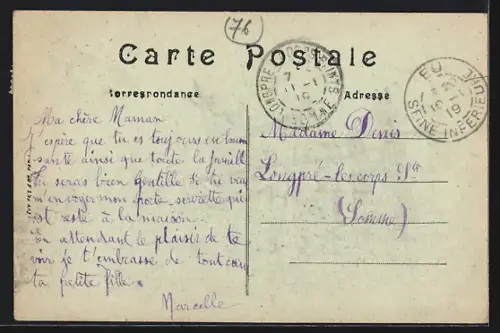 76
Carte Postale
Correspondance
Adresse
Ma chère Maman
J'espère que tu es toujours en bonne
santé ainsi que toute la famille
Tu seras bien gentille si tu veux
m'envoyer mon porte-serviette qui
est resté à la maison.
En attendant le plaisir de te
voir je t'embrasse de tout cœur
ta petite fille.
Marcelle
Madame Denis
Longpré-les-corps Sts
(Somme)
LONGPRÉ-LES-CORPS-SAINTS
SOMME
EU
SEINE INFERIEURE